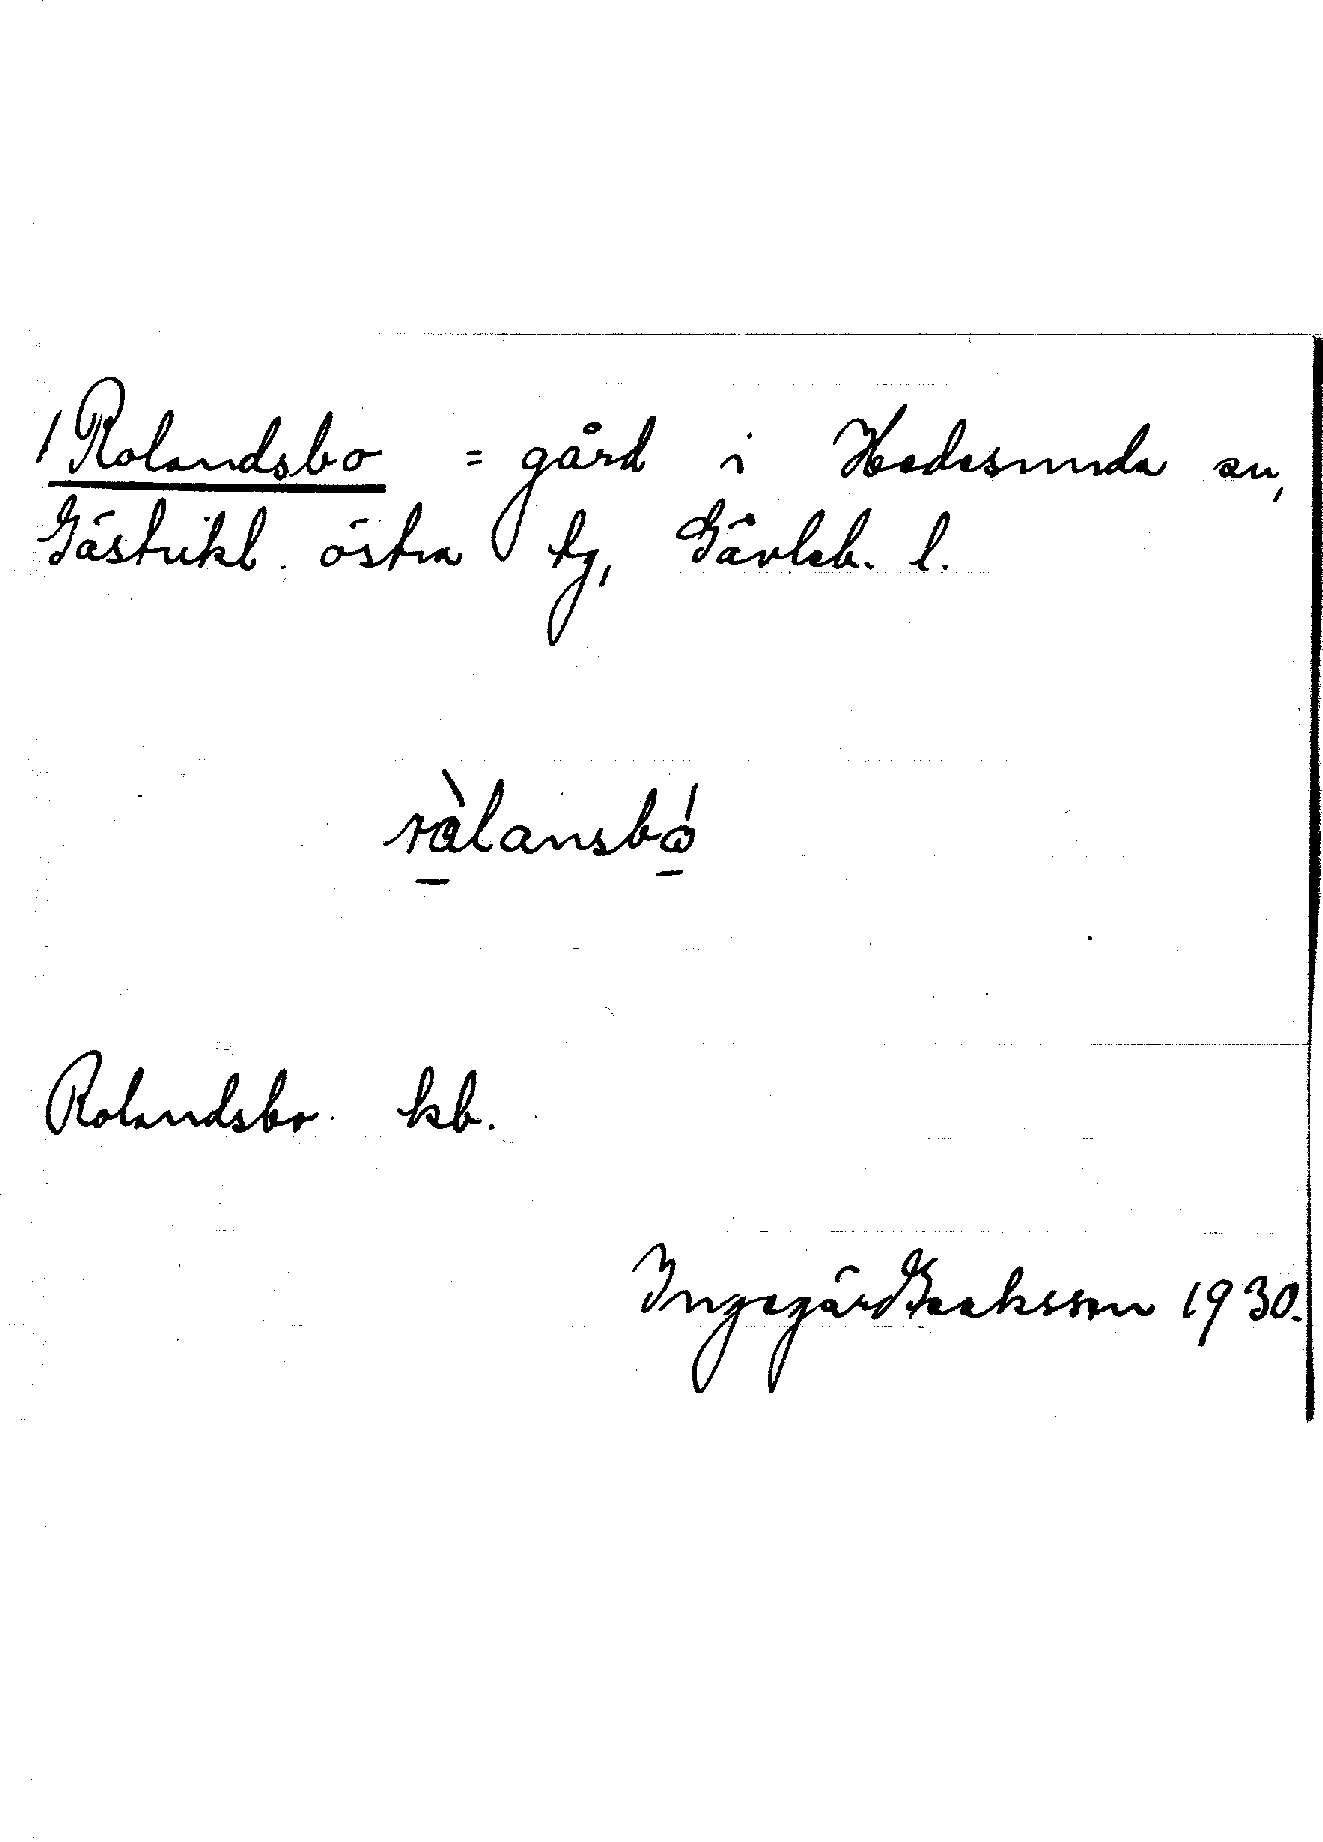 1 Rolandsbo = gård i Hedesunda sn,
Gästrikl. östra tg, Gävleb. l.
ròlansbó
Rolandsbo kb.
Ingegärd Isaksson 1930.